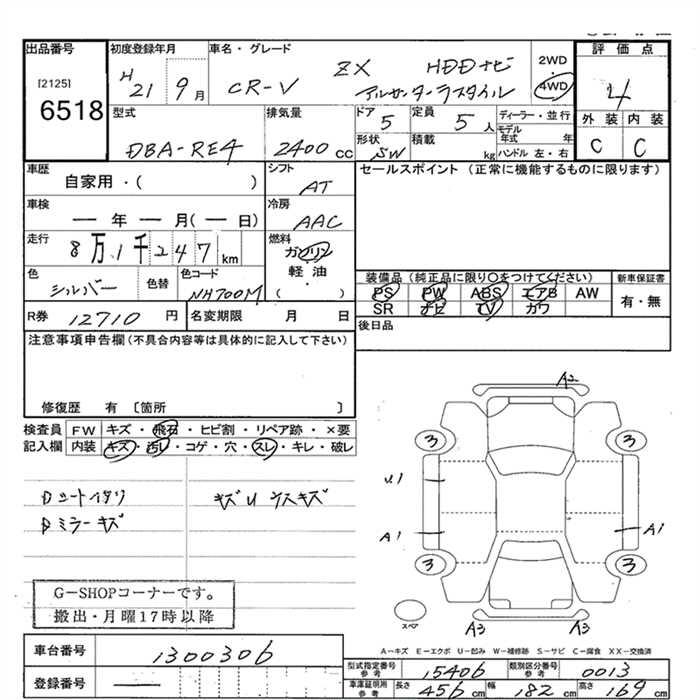 出品番号 初度登録年月 車名・グレード 評価点
[2125] H 21 9月 CR-V ZX HDDナビ 2WD 4WD 4
6518 アルカンターラスタイル
型式 排気量 ドア 定員 ディーラー・並行 外装 内装
DBA-RE4 2400 CC 5 5人 モデル年式 年 C C
形状 SW 積載 kg ハンドル 左・右
車歴 シフト セールスポイント(正常に機能するものに限ります)
自家用・( ) AT
車検 冷房
ー年ー月(ー日) AAC
走行 燃料
8万1千247km ガソリン
色 色替 色コード 軽油 装備品(純正品に限り○をつけてください) 新車保証書
シルバー NH700M ( ) PS PW ABS エアB AW 有・無
SR ナビ TV カワ
R券 12710円 名変期限 月 日 後日品
注意事項申告欄(不具合内容等は具体的に記入して下さい)
修復歴 有〔箇所 〕
検査員 FW キズ・飛石・ヒビ割・リペア跡・×要
記入欄 内装 キズ・汚レ・コゲ・穴・スレ・キレ・破レ
A2
3 3
U1
A1 A1
3 3
スペア A3 A3
Dシートイタリ キズU ウスキズ
Dミラーキズ
G-SHOPコーナーです。
搬出・月曜17時以降
A-キズ E-エクボ U-凹み W-補修跡 S-サビ C-腐食 XX-交換済
車台番号 1300306
型式指定番号 参考 15406 類別区分番号 参考 0013
登録番号 ー
車庫証明用 参考 長さ 456cm 幅 182cm 高さ 169cm